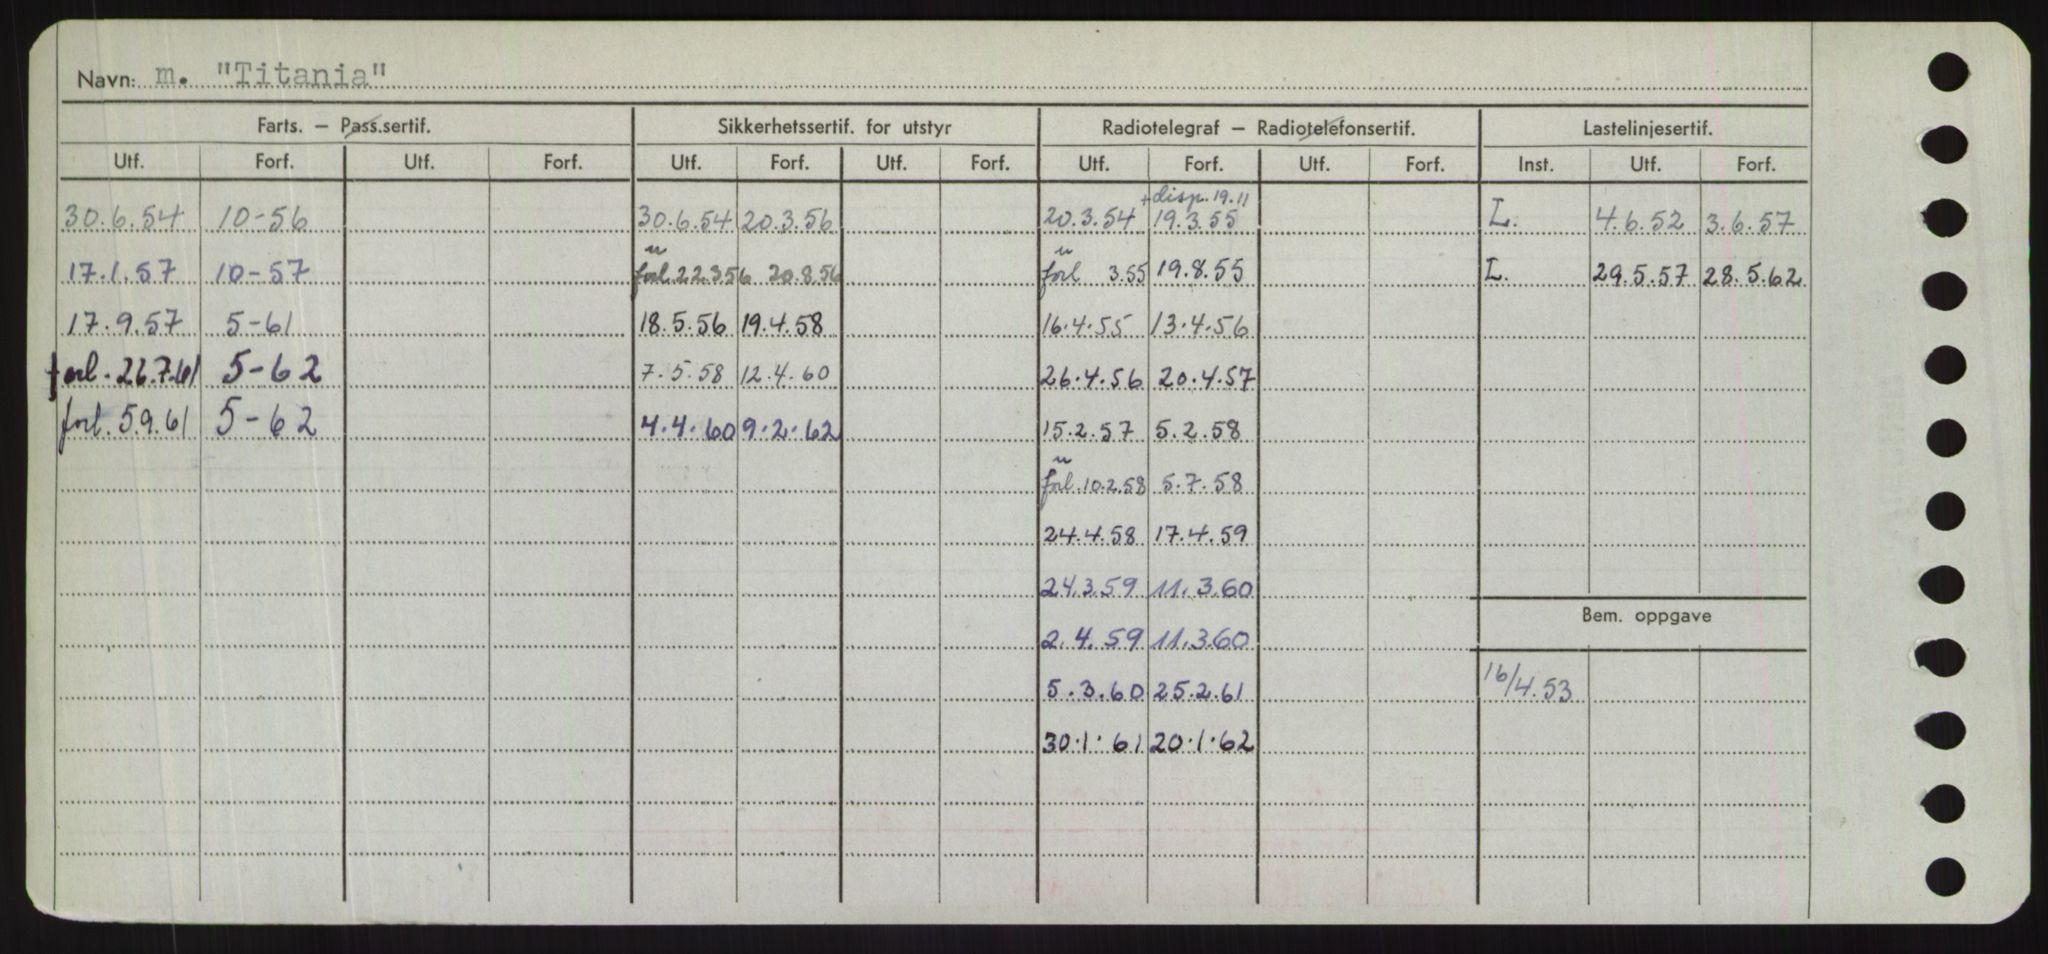 Navn: m. "Titania"
Farts. – Pass.sertif. Sikkerhetssertif. for utstyr Radiotelegraf – Radiotelefonsertif. Lastelinjesertif.
Utf. Forf. Utf. Forf. Utf. Forf. Utf. Forf. Utf. Forf. Utf. Forf. Inst. Utf. Forf.
+disp. 19.11
30.6.54 10-56 30.6.54 20.3.56 20.3.54 19.3.55 L. 4.6.52 3.6.57
17.1.57 10-57 forl 22.3.56 20.8.56 forl 3.55 19.8.55 L. 29.5.57 28.5.62
17.9.57 5-61 18.5.56 19.4.58 16.4.55 13.4.56
forl. 26.7.61 5-62 7.5.58 12.4.60 26.4.56 20.4.57
forl. 5.9.61 5-62 4.4.60 9.2.62 15.2.57 5.2.58
forl. 10.2.58 5.7.58
24.4.58 17.4.59
24.3.59 11.3.60
Bem. oppgave
2.4.59 11.3.60
5.3.60 25.2.61 16/4.53
30.1.61 20.1.62